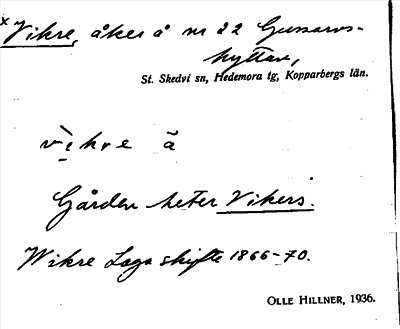 x Vikre, åker å nr 22 Gussarvs-
hyttan,
St. Skedvi sn, Hedemora tg, Kopparbergs län.
vi̠̇kre ä
Gården heter Vikers.
Wikre Laga skifte 1866-70.
OLLE HILLNER, 1936.